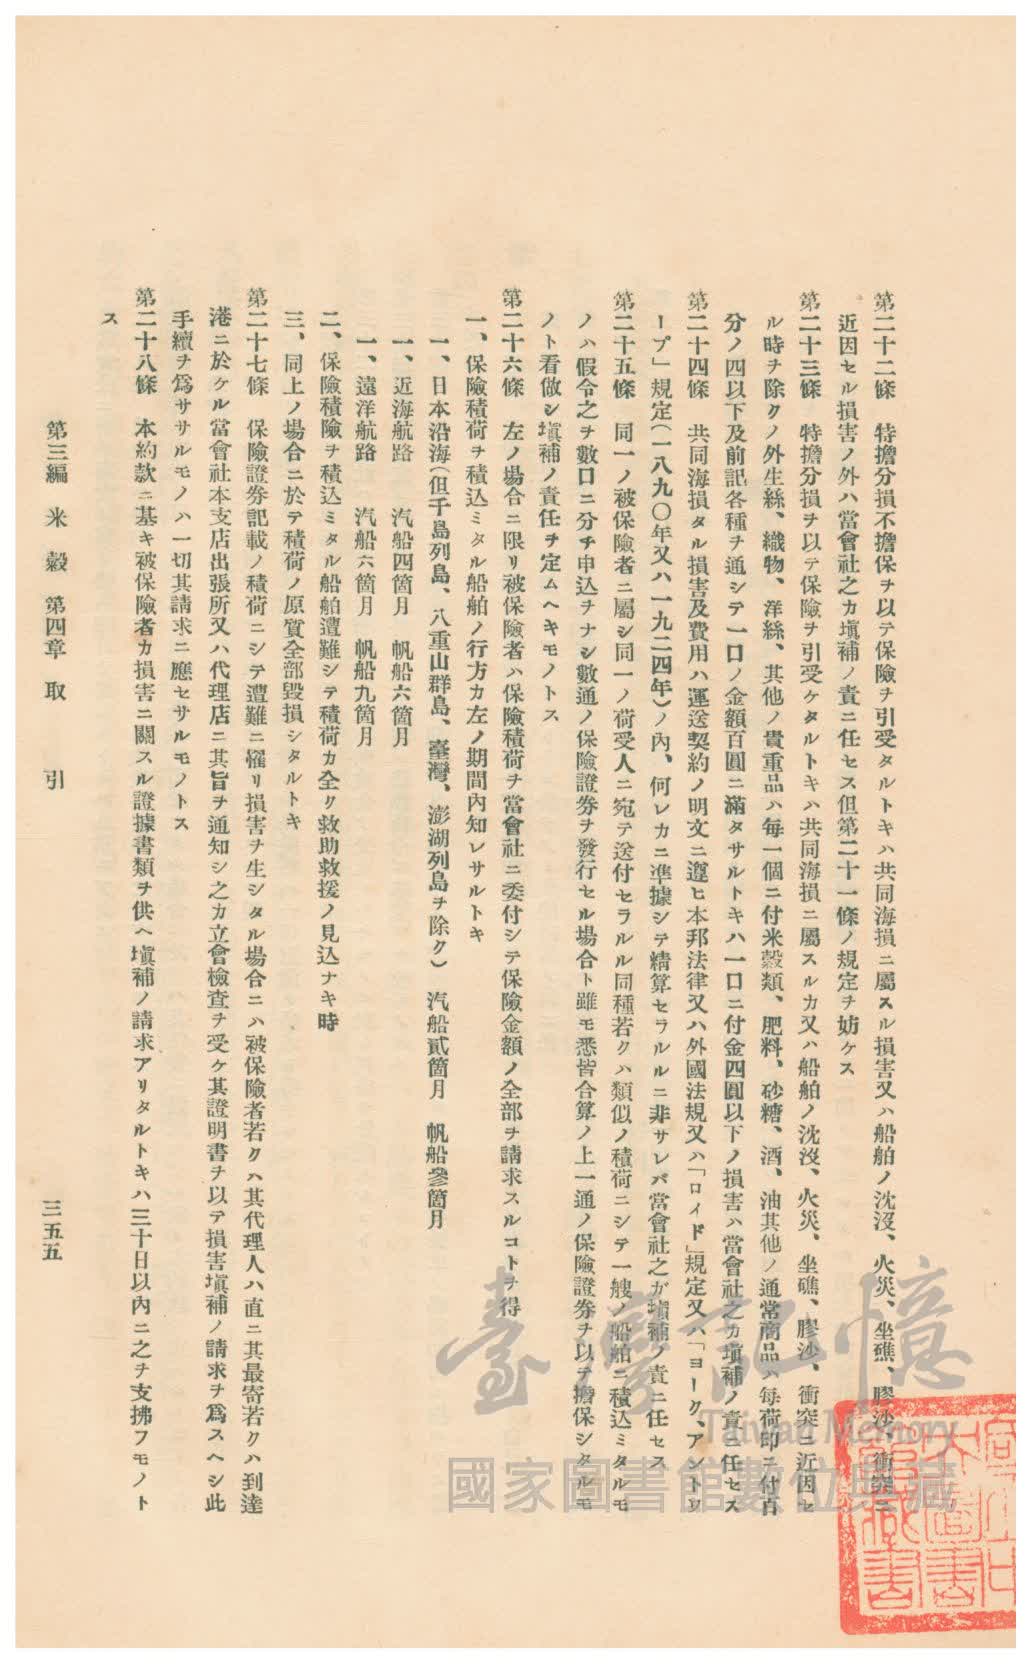 第二十二條　特擔分損不擔保ヲ以テ保險ヲ引受タルトキハ共同海損ニ屬スル損害又ハ船舶ノ沈沒、火災、坐礁、膠沙、衝突ニ
近因セル損害ノ外ハ當會社之カ塡補ノ責ニ任セス但第二十一條ノ規定ヲ妨ケス
第二十三條　特擔分損ヲ以テ保險ヲ引受ケタルトキハ共同海損ニ屬スルカ又ハ船舶ノ沈沒、火災、坐礁、膠沙、衝突ニ近因セ
ル時ヲ除クノ外生絲、織物、洋絲、其他ノ貴重品ハ每一個ニ付米穀類、肥料、砂糖、酒、油其他ノ通常商品ハ每荷印ニ付百
分ノ四以下及前記各種ヲ通シテ一口ノ金額百圓ニ滿タサルトキハ一口ニ付金四圓以下ノ損害ハ當會社之カ塡補ノ責ニ任セス
第二十四條　共同海損タル損害及費用ハ運送契約ノ明文ニ遵ヒ本邦法律又ハ外國法規又ハ「ロイド」規定又ハ「ヨーク、アントワ
ープ」規定(一八九〇年又ハ一九二四年)ノ內、何レカニ準據シテ精算セラルルニ非サレバ當會社之ガ塡補ノ責ニ任セス
第二十五條　同一ノ被保險者ニ屬シ同一ノ荷受人ニ宛テ送付セラルル同種若クハ類似ノ積荷ニシテ一艘ノ船舶ニ積込ミタルモ
ノハ假令之ヲ數口ニ分チ申込ヲナシ數通ノ保險證券ヲ發行セル場合ト雖モ悉皆合算ノ上一通ノ保險證券ヲ以テ擔保シタルモ
ノト看做シ塡補ノ責任ヲ定ムヘキモノトス
第二十六條　左ノ場合ニ限リ被保險者ハ保險積荷ヲ當會社ニ委付シテ保險金額ノ全部ヲ請求スルコトヲ得
一、保險積荷ヲ積込ミタル船舶ノ行方カ左ノ期間內知レサルトキ
一、日本沿海(但千島列島、八重山群島、臺灣、澎湖列島ヲ除ク)　汽船貳箇月　帆船參箇月
一、近海航路　汽船四箇月　帆船六箇月
一、遠洋航路　汽船六箇月　帆船九箇月
二、保險積險ヲ積込ミタル船舶遭難シテ積荷カ全ク救助救援ノ見込ナキ時
三、同上ノ場合ニ於テ積荷ノ原質全部毀損シタルトキ
第二十七條　保險證券記載ノ積荷ニシテ遭難ニ罹リ損害ヲ生シタル場合ニハ被保險者若クハ其代理人ハ直ニ其最寄若クハ到達
港ニ於ケル當會社本支店出張所又ハ代理店ニ其旨ヲ通知シ之カ立會檢查ヲ受ケ其證明書ヲ以テ損害塡補ノ請求ヲ爲スヘシ此
手續ヲ爲ササルモノハ一切其請求ニ應セサルモノトス
第二十八條　本約款ニ基キ被保險者カ損害ニ關スル證據書類ヲ供ヘ塡補ノ請求アリタルトキハ三十日以內ニ之ヲ支拂フモノト
ス
第三編　米　穀　第四章　取　引
三五五
臺灣記憶
Taiwan Memory
國家圖書館數位典藏